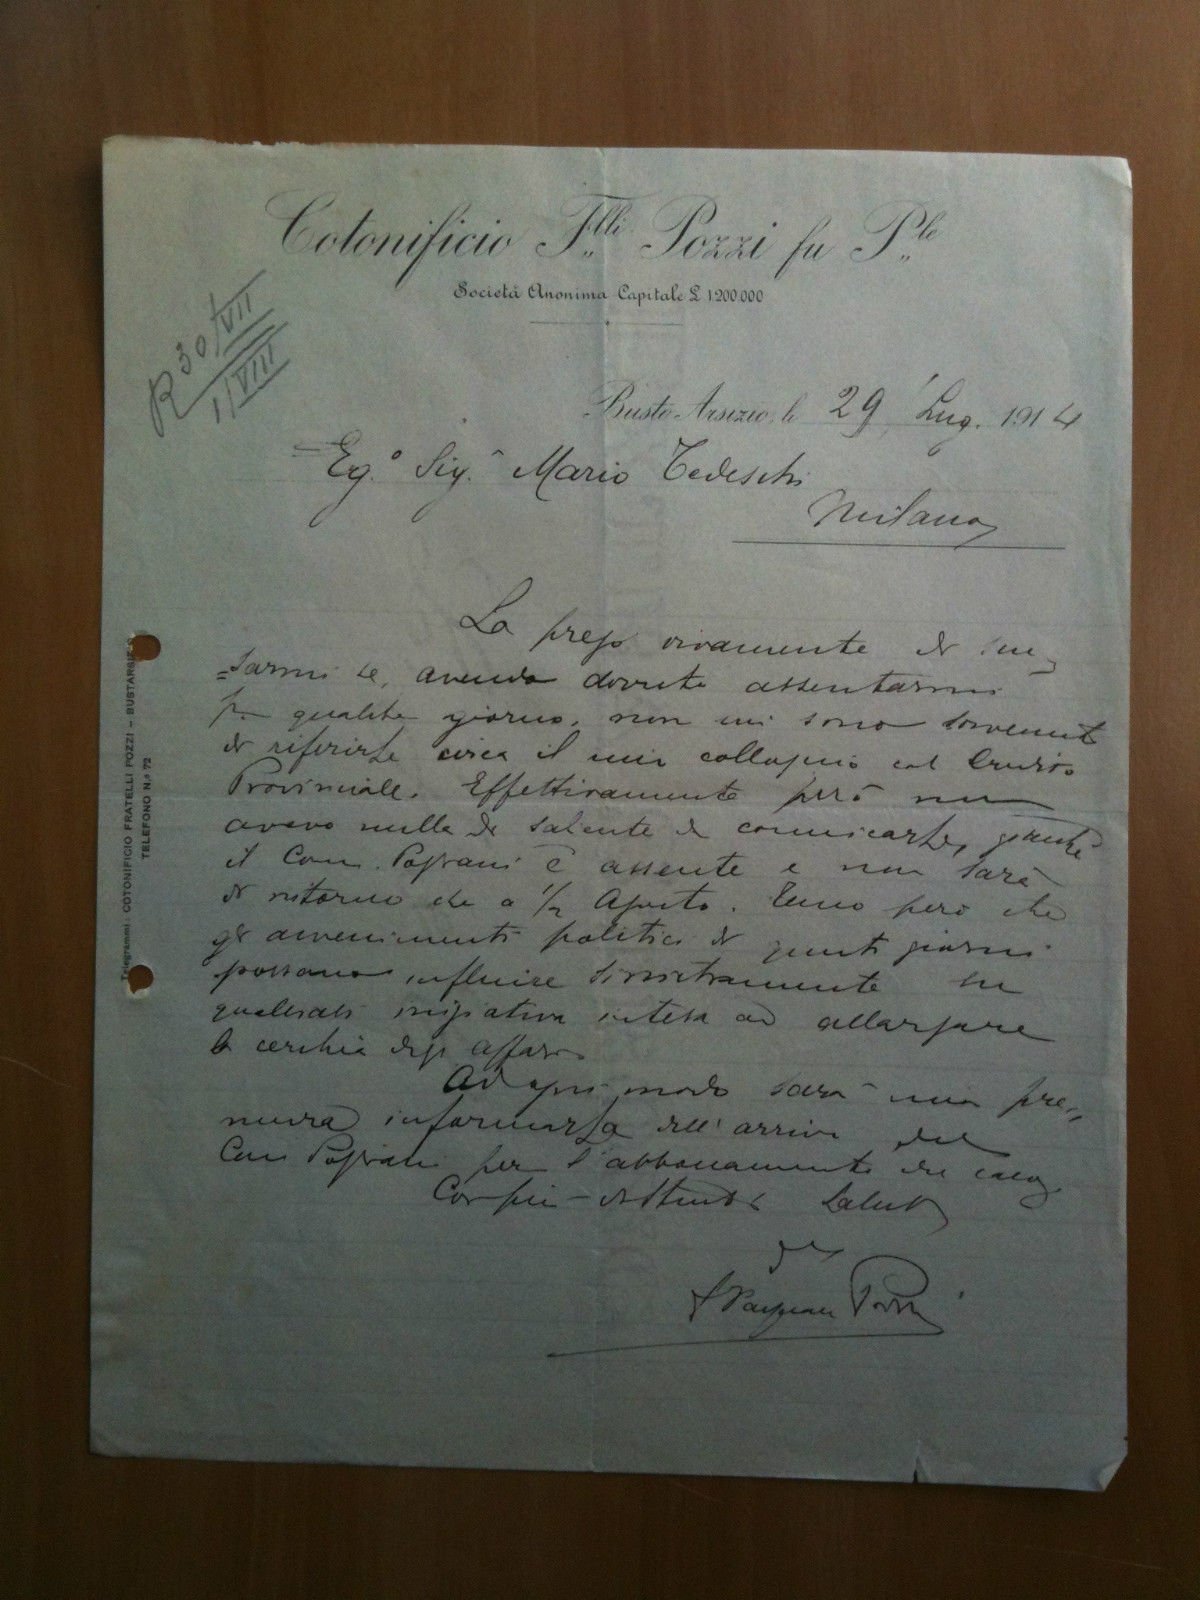 Cotonificio F.lli Pozzi fu P.le
Società Anonima Capitale £ 1200.000
R 30/VII
1/VIII
Busto Arsizio, li 29 Lug. 1914
Eg.o Sig.r Mario Tedeschi
Milano
La prego vivamente di scu
=sarmi se, avendo dovuto assentarmi
per qualche giorno, non mi sono sovvenuto
di riferirle circa il mio colloquio col
Provinciale. Effettivamente però non
avevo nulla di saliente da comunicarle, giacchè
il Com. è assente e non sarà
di ritorno che a 1/2 Agosto. Temo però che
gli avvenimenti politici di questi giorni
possano influire sinistramente su
qualsiasi iniziativa intesa ad allargare
la cerchia degli affari
Ad ogni modo sarà mia pre=
mura informarla dell'arrivo del
Com per l'abbonamento
Coi più distinti saluti
Pozzi
Telegrammi: COTONIFICIO FRATELLI POZZI - BUSTARSIZIO
TELEFONO N.o 72